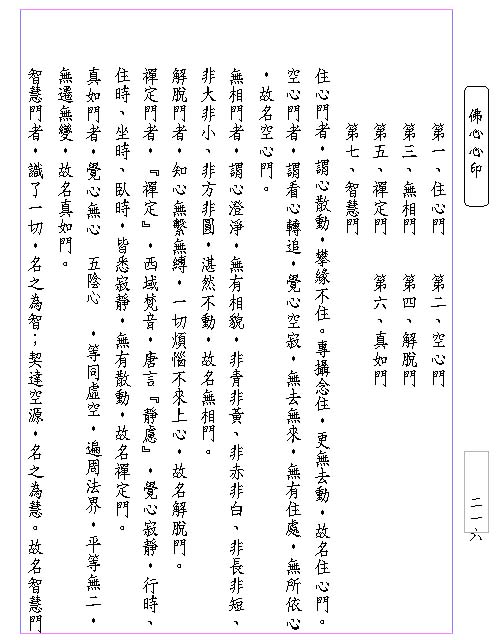 佛心心印
第一、住心門　第二、空心門
第三、無相門　第四、解脫門
第五、禪定門　第六、真如門
第七、智慧門
住心門者，謂心散動，攀緣不住。專攝念住，更無去動，故名住心門。
空心門者，謂看心轉追，覺心空寂，無去無來，無有住處，無所依心
，故名空心門。
無相門者，謂心澄淨，無有相貌，非青非黃、非赤非白、非長非短、
非大非小、非方非圓，湛然不動，故名無相門。
解脫門者，知心無繫無縛，一切煩惱不來上心，故名解脫門。
禪定門者，『禪定』，西域梵音，唐言『靜慮』，覺心寂靜，行時、
住時、坐時、臥時，皆悉寂靜，無有散動，故名禪定門。
真如門者，覺心無心　五陰心　，等同虛空，遍周法界，平等無二，
無遷無變，故名真如門。
智慧門者，識了一切，名之為智；契達空源，名之為慧。故名智慧門
二一六